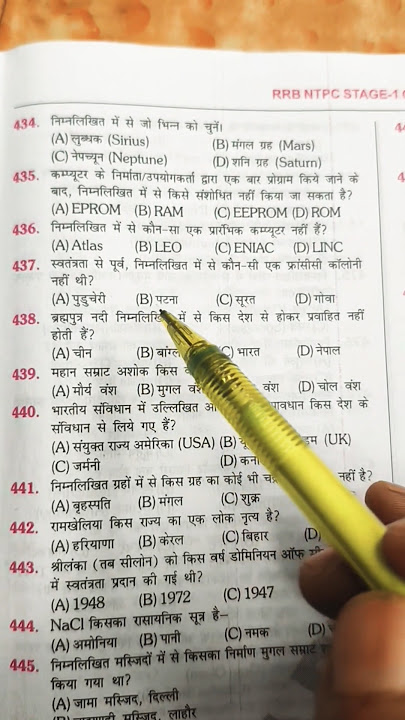 RRB NTPC STAGE-1
434. निम्नलिखित में से जो भिन्न को चुनें।
(A) लुब्धक (Sirius) (B) मंगल ग्रह (Mars)
(C) नेपच्यून (Neptune) (D) शनि ग्रह (Saturn)
435. कम्प्यूटर के निर्माता/उपयोगकर्ता द्वारा एक बार प्रोग्राम किये जाने के
बाद, निम्नलिखित में से किसे संशोधित नहीं किया जा सकता है?
(A) EPROM (B) RAM (C) EEPROM (D) ROM
436. निम्नलिखित में से कौन-सा एक प्रारंभिक कम्प्यूटर नहीं हैं?
(A) Atlas (B) LEO (C) ENIAC (D) LINC
437. स्वतंत्रता से पूर्व, निम्नलिखित में से कौन-सी एक फ्रांसीसी कॉलोनी
नहीं थी?
(A) पुडुचेरी (B) पटना (C) सूरत (D) गोवा
438. ब्रह्मपुत्र नदी में से किस देश से होकर प्रवाहित नहीं
होती हैं?
(A) चीन (B) (C) भारत (D) नेपाल
439. महान सम्राट अशोक किस
(A) मौर्य वंश (B) मुगल वंश (D) चोल वंश
440. भारतीय संविधान में उल्लिखित किस देश के
संविधान से लिये गए हैं?
(A) संयुक्त राज्य अमेरिका (USA) (B) (UK)
(C) जर्मनी (D)
441. निम्नलिखित ग्रहों में से किस ग्रह का कोई भी नहीं है?
(A) बृहस्पति (B) मंगल (C) शुक्र
442. रामखेलिया किस राज्य का एक लोक नृत्य है?
(A) हरियाणा (B) केरल (C) बिहार (D)
443. श्रीलंका (तब सीलोन) को किस वर्ष डोमिनियन ऑफ
में स्वतंत्रता प्रदान की गई थी?
(A) 1948 (B) 1972 (C) 1947
444. NaCl किसका रासायनिक सूत्र है–
(A) अमोनिया (B) पानी (C) नमक (D)
445. निम्नलिखित मस्जिदों में से किसका निर्माण मुगल सम्राट
किया गया था?
(A) जामा मस्जिद, दिल्ली
मस्जिद, लाहौर